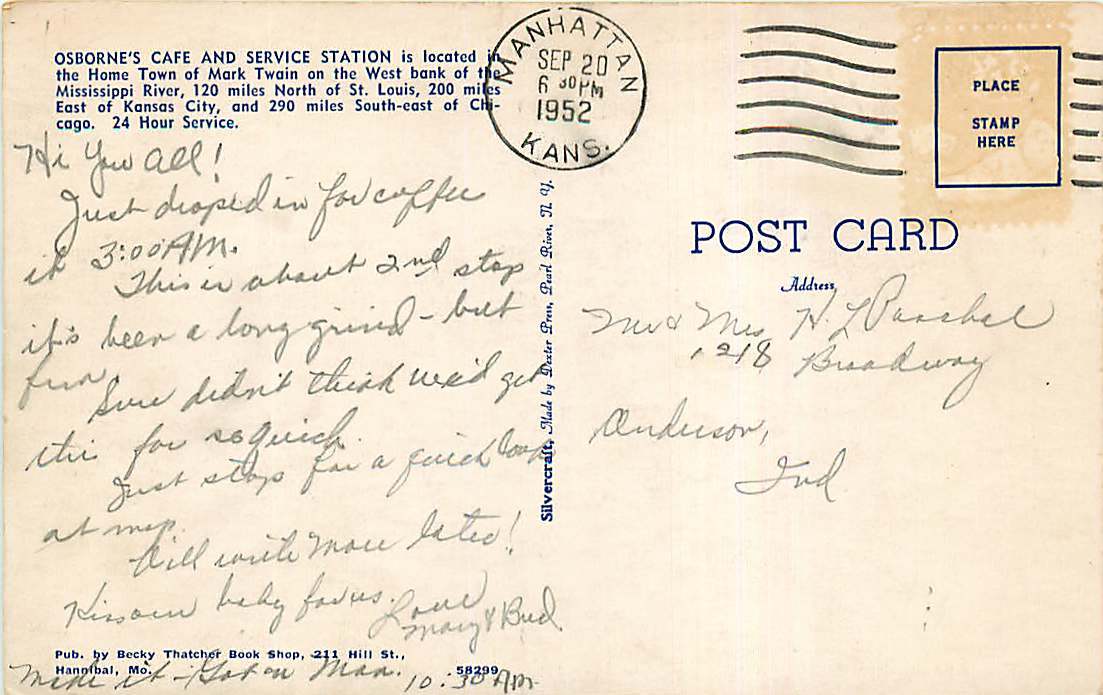 OSBORNE'S CAFE AND SERVICE STATION is located in
the Home Town of Mark Twain on the West bank of the
Mississippi River, 120 miles North of St. Louis, 200 miles
East of Kansas City, and 290 miles South-east of Chi-
cago. 24 Hour Service.
MANHATTAN
SEP 20
6 30 PM
1952
KANS.
PLACE
STAMP
HERE
Hi You all!
Just droped in for coffee
it 3:00 AM.
This is about 2nd stop
it's been a long grind - but
fun.
Sure didn't think we'd get
this far so quick.
Just stops for a quick look
at map.
Will write more later!
Kiss our baby for us.
Love
Mary & Bud.
Made it - Got on Mon.
10:30 AM.
Pub. by Becky Thatcher Book Shop, 211 Hill St.,
Hannibal, Mo.
58299
Silvercraft, Made by Dexter Press, Pearl River, N. Y.
POST CARD
Address
Mr & Mrs H. L Paschal
1218 Broadway
Anderson,
Ind